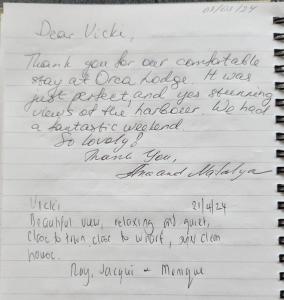 03/03/24
Dear Vicki,
Thank you for our comfortable
stay at Orca Lodge. It was
just perfect, and yes stunning
views of the harbour. We had
a fantastic weekend.
So lovely!
Thank You,
and Natalya
Vicki 21/4/24
Beautiful view, relaxing and quiet,
Close to town, close to wharf, clean
house.
Roy, Jacqui + Monique